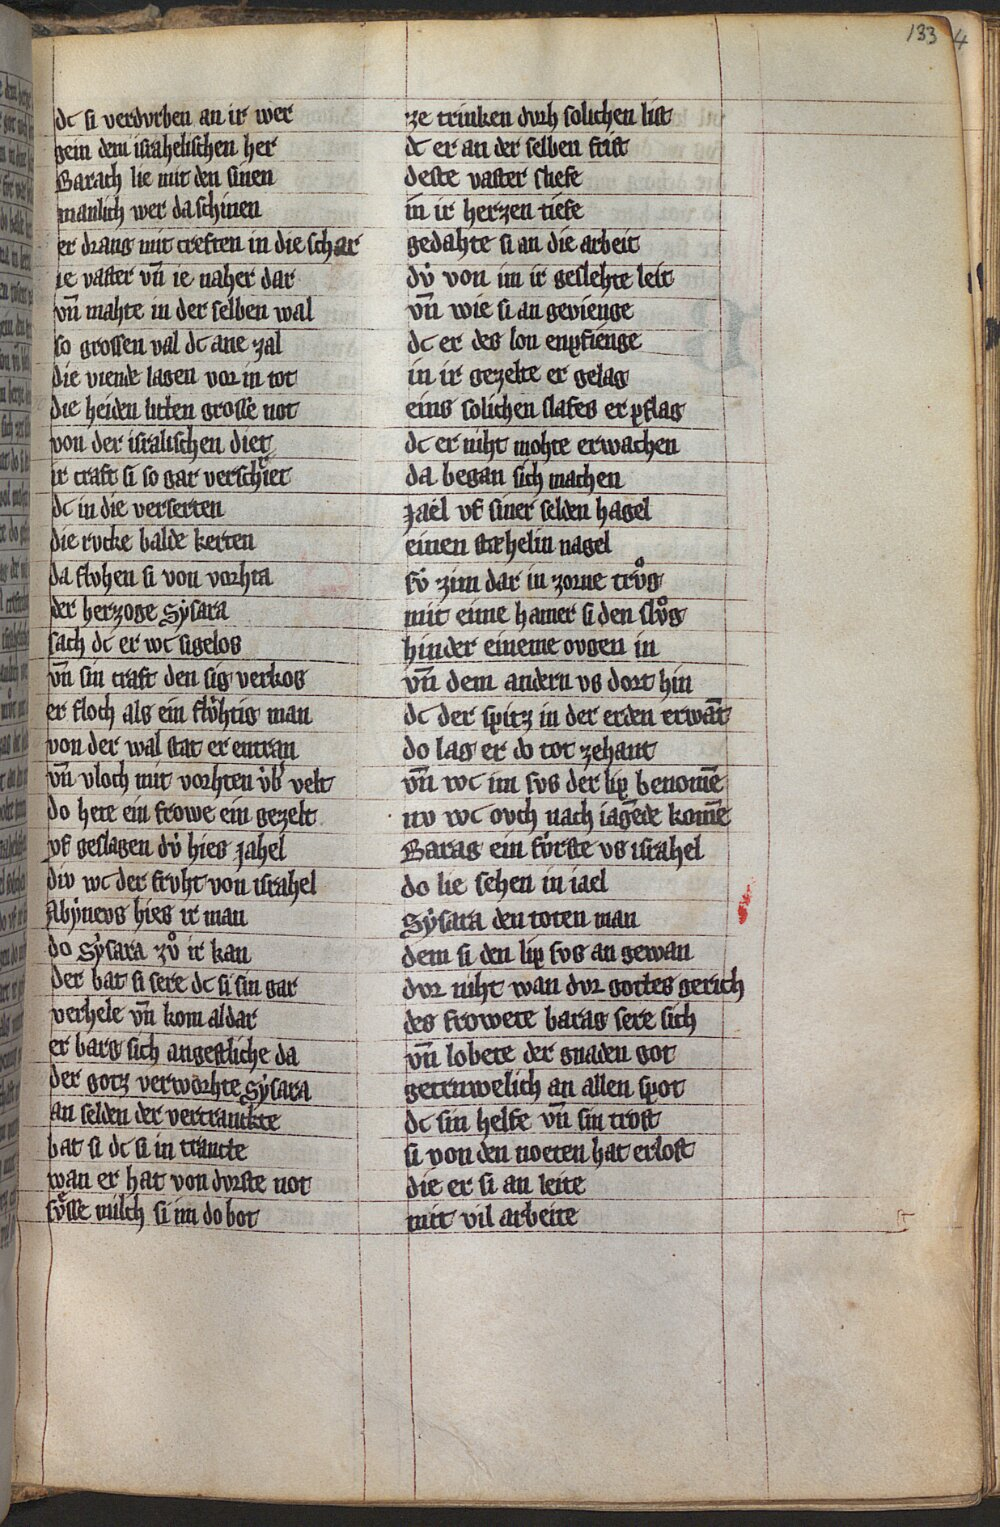 133
4
dc si verdvrben an ir wer
gein dem israhelischen her
Barach lie mit den sinen
manlich wer da schinen
er drang mit creften in die schar
ie vaster vn̄ ie naher dar
vn̄ mahte in der selben wal
so grossen val dc ane zal
die viende lagen vor in tot
die heiden liten grosse not
von der isralischen diet
ir craft si so gar verschiͤet
dc in die verserten
die rvcke balde kerten
da flvhen si von vorhta
der herzoge Sẏsara
sach dc er wc sigelos
vn̄ sin craft den sig verkos
er floch als ein flv̍htig man
von der wal stat er entran
vn̄ vloch mit vorhten v̍b' velt
do hete ein frowe ein gezelt
vf geslagen dv̍ hies jahel
div wc der frvht von israhel
Abẏnevs hies ir man
do Sẏsara zvͦ ir kan
der bat si sere dc si sin gar
verhele vn̄ kom aldar
er barg sich angestliche da
der gotz verworhte Sẏsara
an selden der vertranckte
bat si dc si in trancte
wan er hat von dvrste not
svͤsse milch si im do bot
ze trinken dvrh solichen list
dc er an der selben frist
deste vaster sliefe
in ir herzen tiefe
gedahte si an die arbeit
dv̍ von im ir geslehte leit
vn̄ wie si an gevienge
dc er des lon enpfienge
in ir gezelte er gelag
eins solichen slafes er pflag
dc er niht mohte erwachen
da began sich machen
Jael vf siner selden hagel
einen stæhelin nagel
sv̍ zim dar in zorne trvͦg
mit eime hamer si den slvͦg
hinder eineme ovgen in
vn̄ dem andern vs dort hin
dc der spitz in der erden erwāt
do lag er do tot zehant
vn̄ wc im svs der lip benomē
nv wc ovch nach iagēde komē
Barag ein fv̍rste vs israhel
do lie sehen in iael
Sẏsara den toten man
dem si den lip svs an gewan
dvr niht wan dvr gottes gerich
des frowete barag sere sich
vn̄ lobete der gnaden got
getruwelich an allen spot
dc sin helfe vn̄ sin trost
si von den noeten hat erlost
die er si an leite
mit vil arbeite